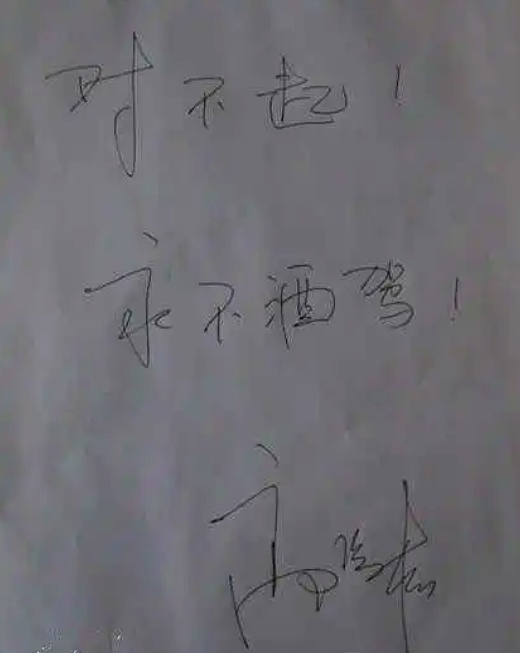 对不起！
永不酒驾！
高晓松